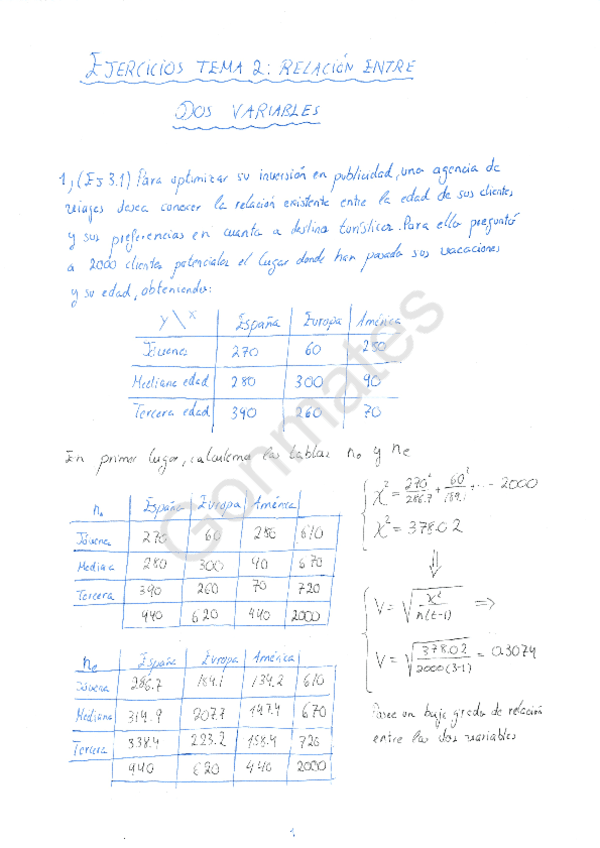 EJERCICIOS TEMA 2: RELACIÓN ENTRE
DOS VARIABLES
1, (Ej 3.1) Para optimizar su inversión en publicidad, una agencia de
viajes desea conocer la relación existente entre la edad de sus clientes
y sus preferencias en cuanto a destino turístico. Para ello preguntó
a 2000 clientes potenciales el lugar donde han pasado sus vacaciones
y su edad, obteniendo:
y \ x España Europa América
Jóvenes 270 60 280
Mediana edad 280 300 90
Tercera edad 390 260 70
En primer lugar, calculemos las tablas no y ne
no España Europa América
Jóvenes 270 60 280 610
Mediana 280 300 90 670
Tercera 390 260 70 720
940 620 440 2000
χ² = 270²/286.7 + 60²/189.1 + ... - 2000
χ² = 378.02
⇓
V = √(χ²/n(t-1)) ⇒
V = √(378.02/2000(3-1)) = 0.3074
Posee un bajo grado de relación
entre las dos variables
ne España Europa América
Jóvenes 286.7 189.1 134.2 610
Mediana 314.9 207.7 147.4 670
Tercera 338.4 223.2 158.4 720
940 620 440 2000
1
Gonmates